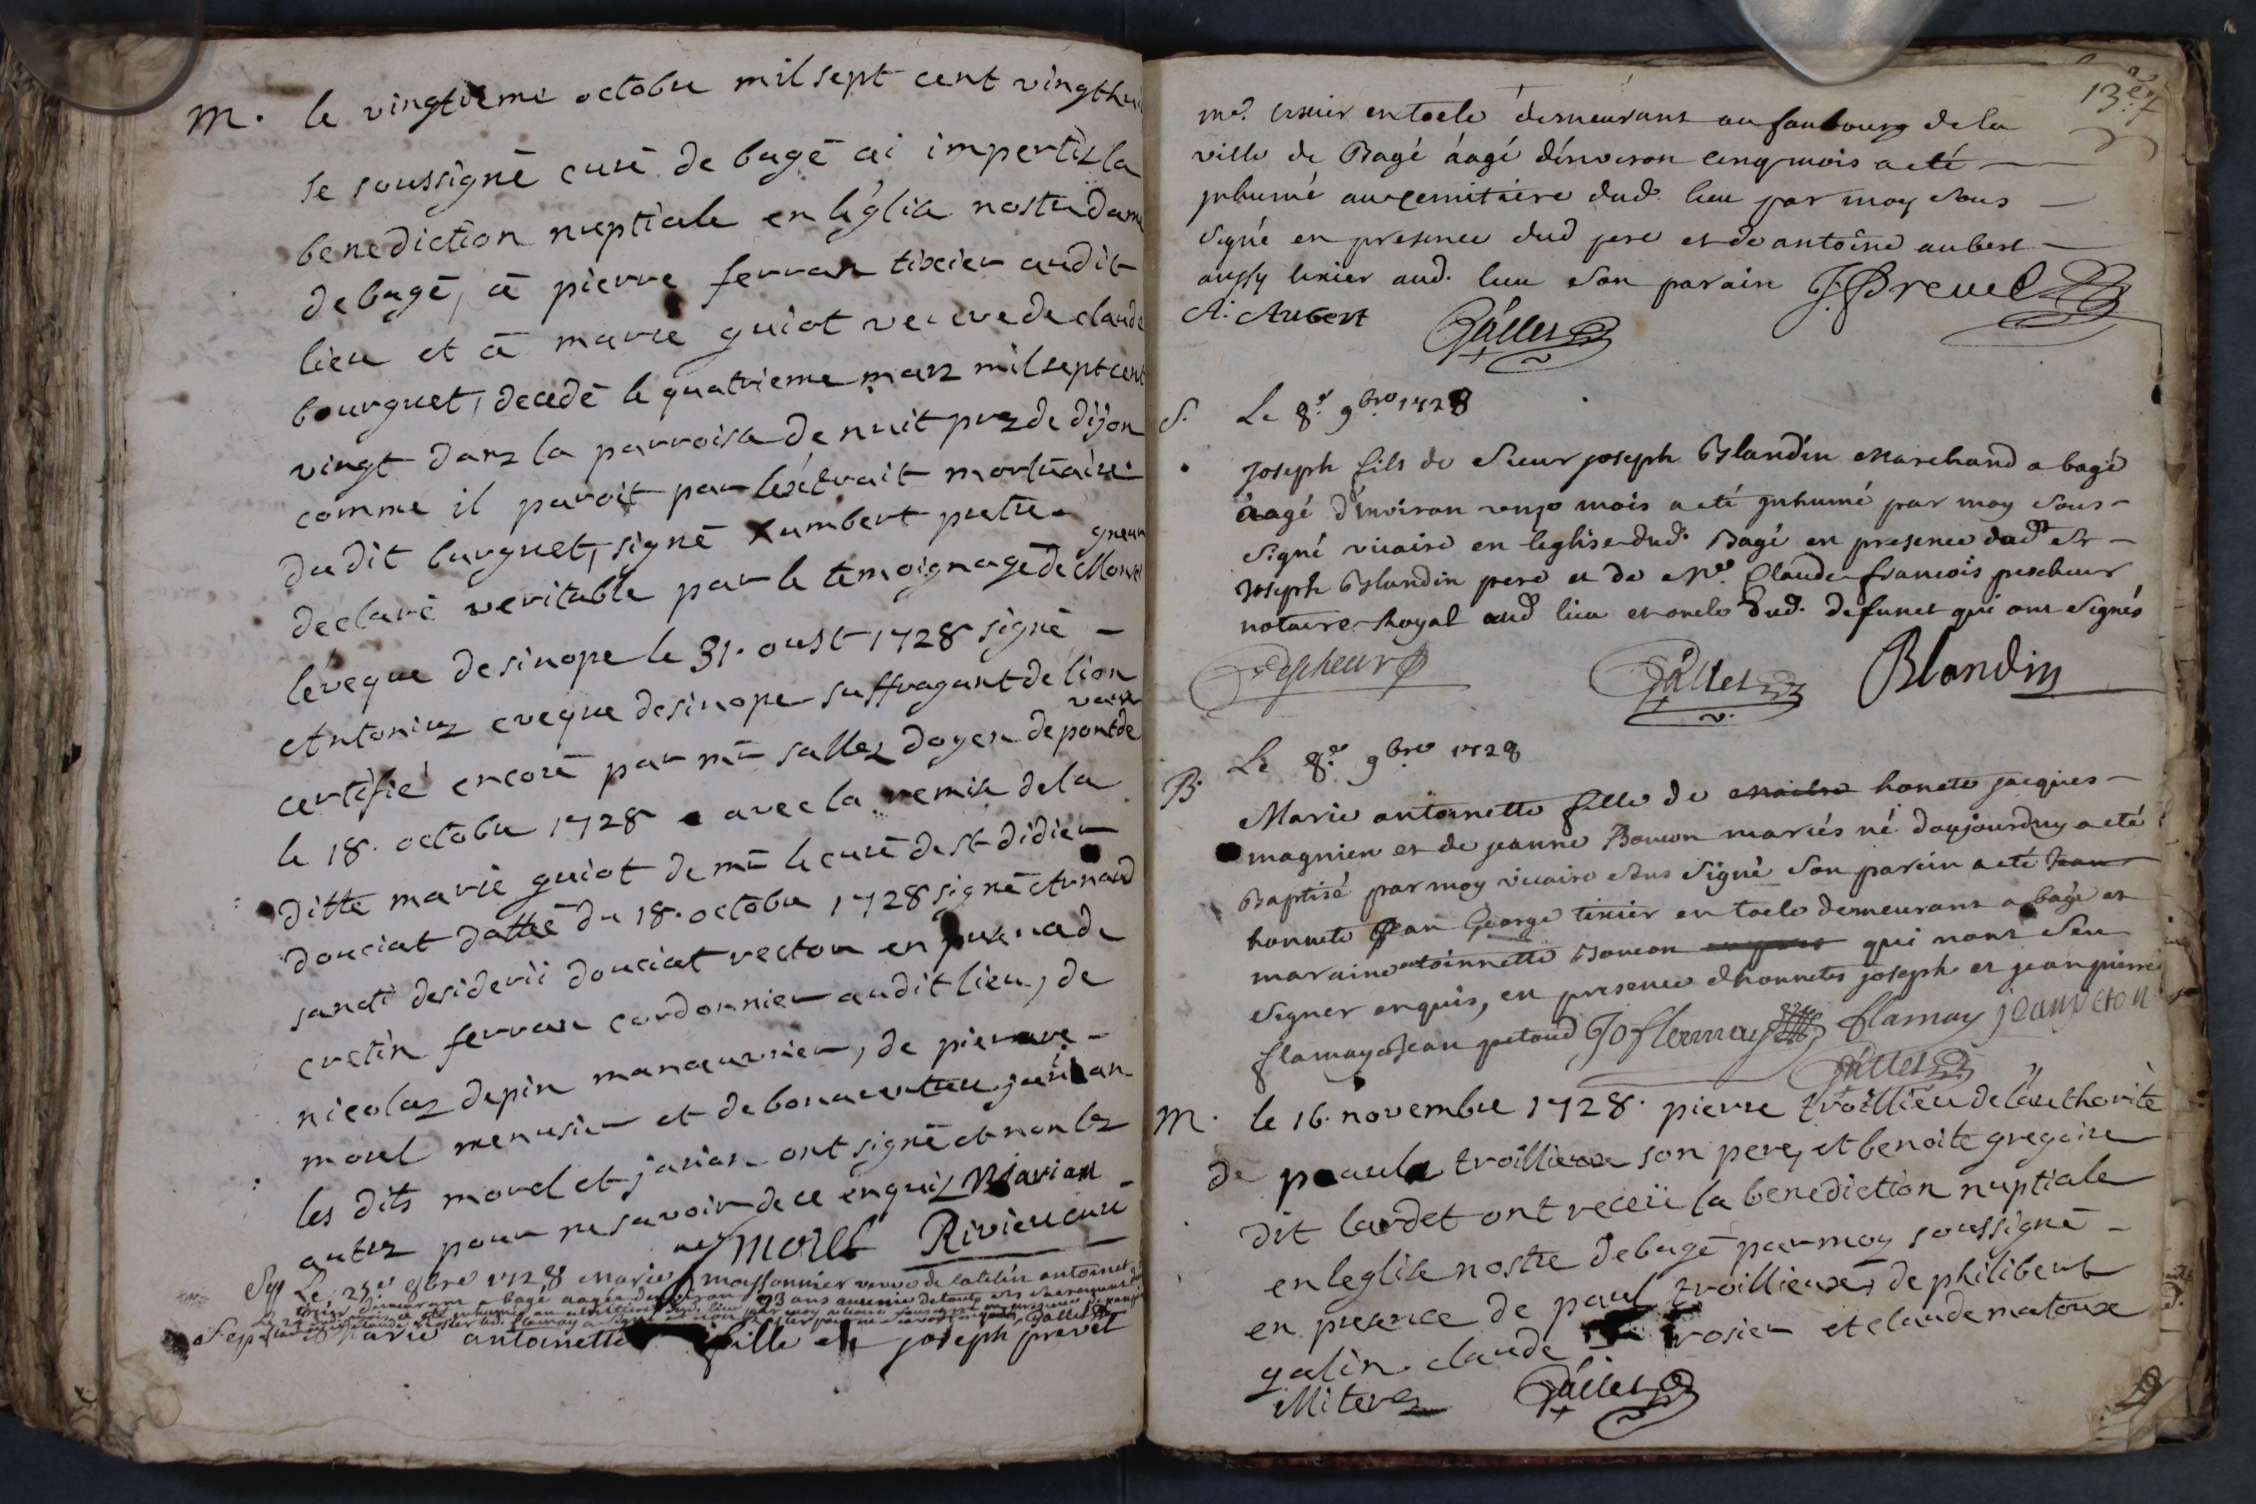 M. le vingtieme octobre mil sept cent vingthui
Je soussigné curé de bagé ai impertis la
benediction nuptiale en l'églisе nostre dame
de bagé, à pierre ferran tixier audit
lieu et à marie guiot veuve de claude
bourguet, decedé le quatrieme marz mil sept cent
vingt danz la parroisse de nuit prez de dijon
comme il paroit par l'éxtrait mortuaire
dudit burguet, signé humbert pretre
declaré veritable par le temoignage de Monse
gneur
léveque de sinope le 31. oust 1728 signé
Antoniuz eveque de sinope suffragant de lion
certifié encore par mr sallez doyen de pont de
vaux
le 18. octobre 1728 avec la remise de la
ditte marie guiot de mr le curé de st didier
donciat dattée du 18. octobre 1728 signé Arnaud
sancti desiderii donciat rector en presence de
cretin ferran cordonnier audit lieu, de
nicolaz depin manœuvrier, de pierre
morel menusier et de bonaventure jarian
les dits morel et jarian ont signé et non lez
autrez pour ne savoir de ce enquiz Njarian
morel Riviere curé
Sep Le 25e 8bre 1728 Marie massonnier veuve de latelin antoinet
demeurant a bagé aagée denviron 73 ans
Sep Marie antoinette fille de joseph prevel
13e
md. tixier en toele demeurant au faubourg de la
ville de Bagé áagé dénviron cinq mois a eté
jnhumé au cemitaire dud. lieu par moy sous
signé en presence dud pere et de antoine aubert
aussy tixier aud. lieu son parain J. Prevel
A. Aubert Galles
S. Le 8e. 9bre 1728
Joseph fils de Sieur joseph Blandin Marchand a bagé
áagé d'environ onze mois a eté jnhumé par moy sous
signé vicaire en leglise dud. Bagé en presence dud Sr
Joseph Blandin pere et de Me. Claude francois pescheur
notaire Royal aud lieu et oncle dud. defunct qui ont signés
Pescheur Galles Blandin
B. Le 8e. 9bre 1728
Marie antoinette fille de maitre honete jacques
magnien et de jeanne Boucon mariés né daujourdhuy a eté
Baptisé par moy vicaire sous signé son parein a eté Jean
honnete Jean George tixier en toele demeurant a bagé et
maraine antoinnette Boucon enquis qui nont seu
signer enquis, en presence dhonnetes joseph et jean pierre
flamay et Jean petoud Jo flammay flamay jean peton
Galles
M. le 16. novembre 1728. pierre troillieu de l'authorité
de paula troillieux son pere, et benoite gregoire
dit lardet ont receü la benediction nuptiale
en leglise nostre de bagé par moy soussigné
en presence de paul troillieux, de philibert
galin claude rosier et claude matoux
Miterez Galles